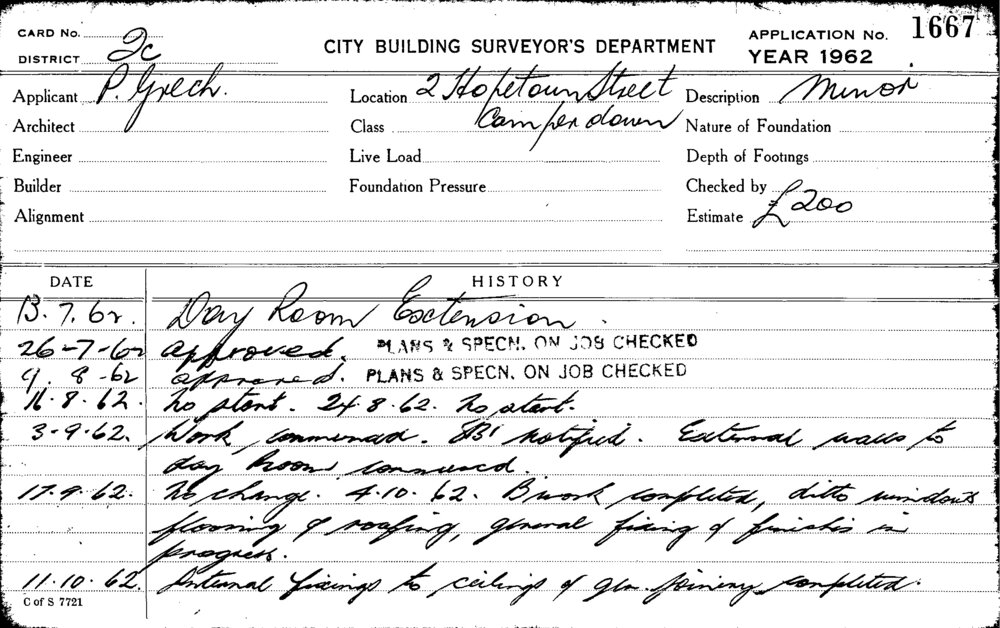 CARD No.
DISTRICT 2c
CITY BUILDING SURVEYOR'S DEPARTMENT
APPLICATION No. 1667
YEAR 1962
Applicant P. Grech.
Location 2 Hopetoun Street
Camperdown
Description Minor
Architect
Class
Nature of Foundation
Engineer
Live Load
Depth of Footings
Builder
Foundation Pressure
Checked by
Alignment
Estimate £200
DATE HISTORY
13.7.62. Day Room Extension.
26-7-62 approved. PLANS & SPECN. ON JOB CHECKED
9.8-62 approved. PLANS & SPECN. ON JOB CHECKED
16.8.62. No start. 24.8.62. No start.
3-9.62. Work commenced. notified. External walls to
day Room commenced.
17.9.62. No change. 4.10.62. Bwork completed, ditto windows
flooring & roofing, general fixing of finishes in
progress.
11.10.62. Internal fixings to ceilings & gen. joinery completed.
C of S 7721